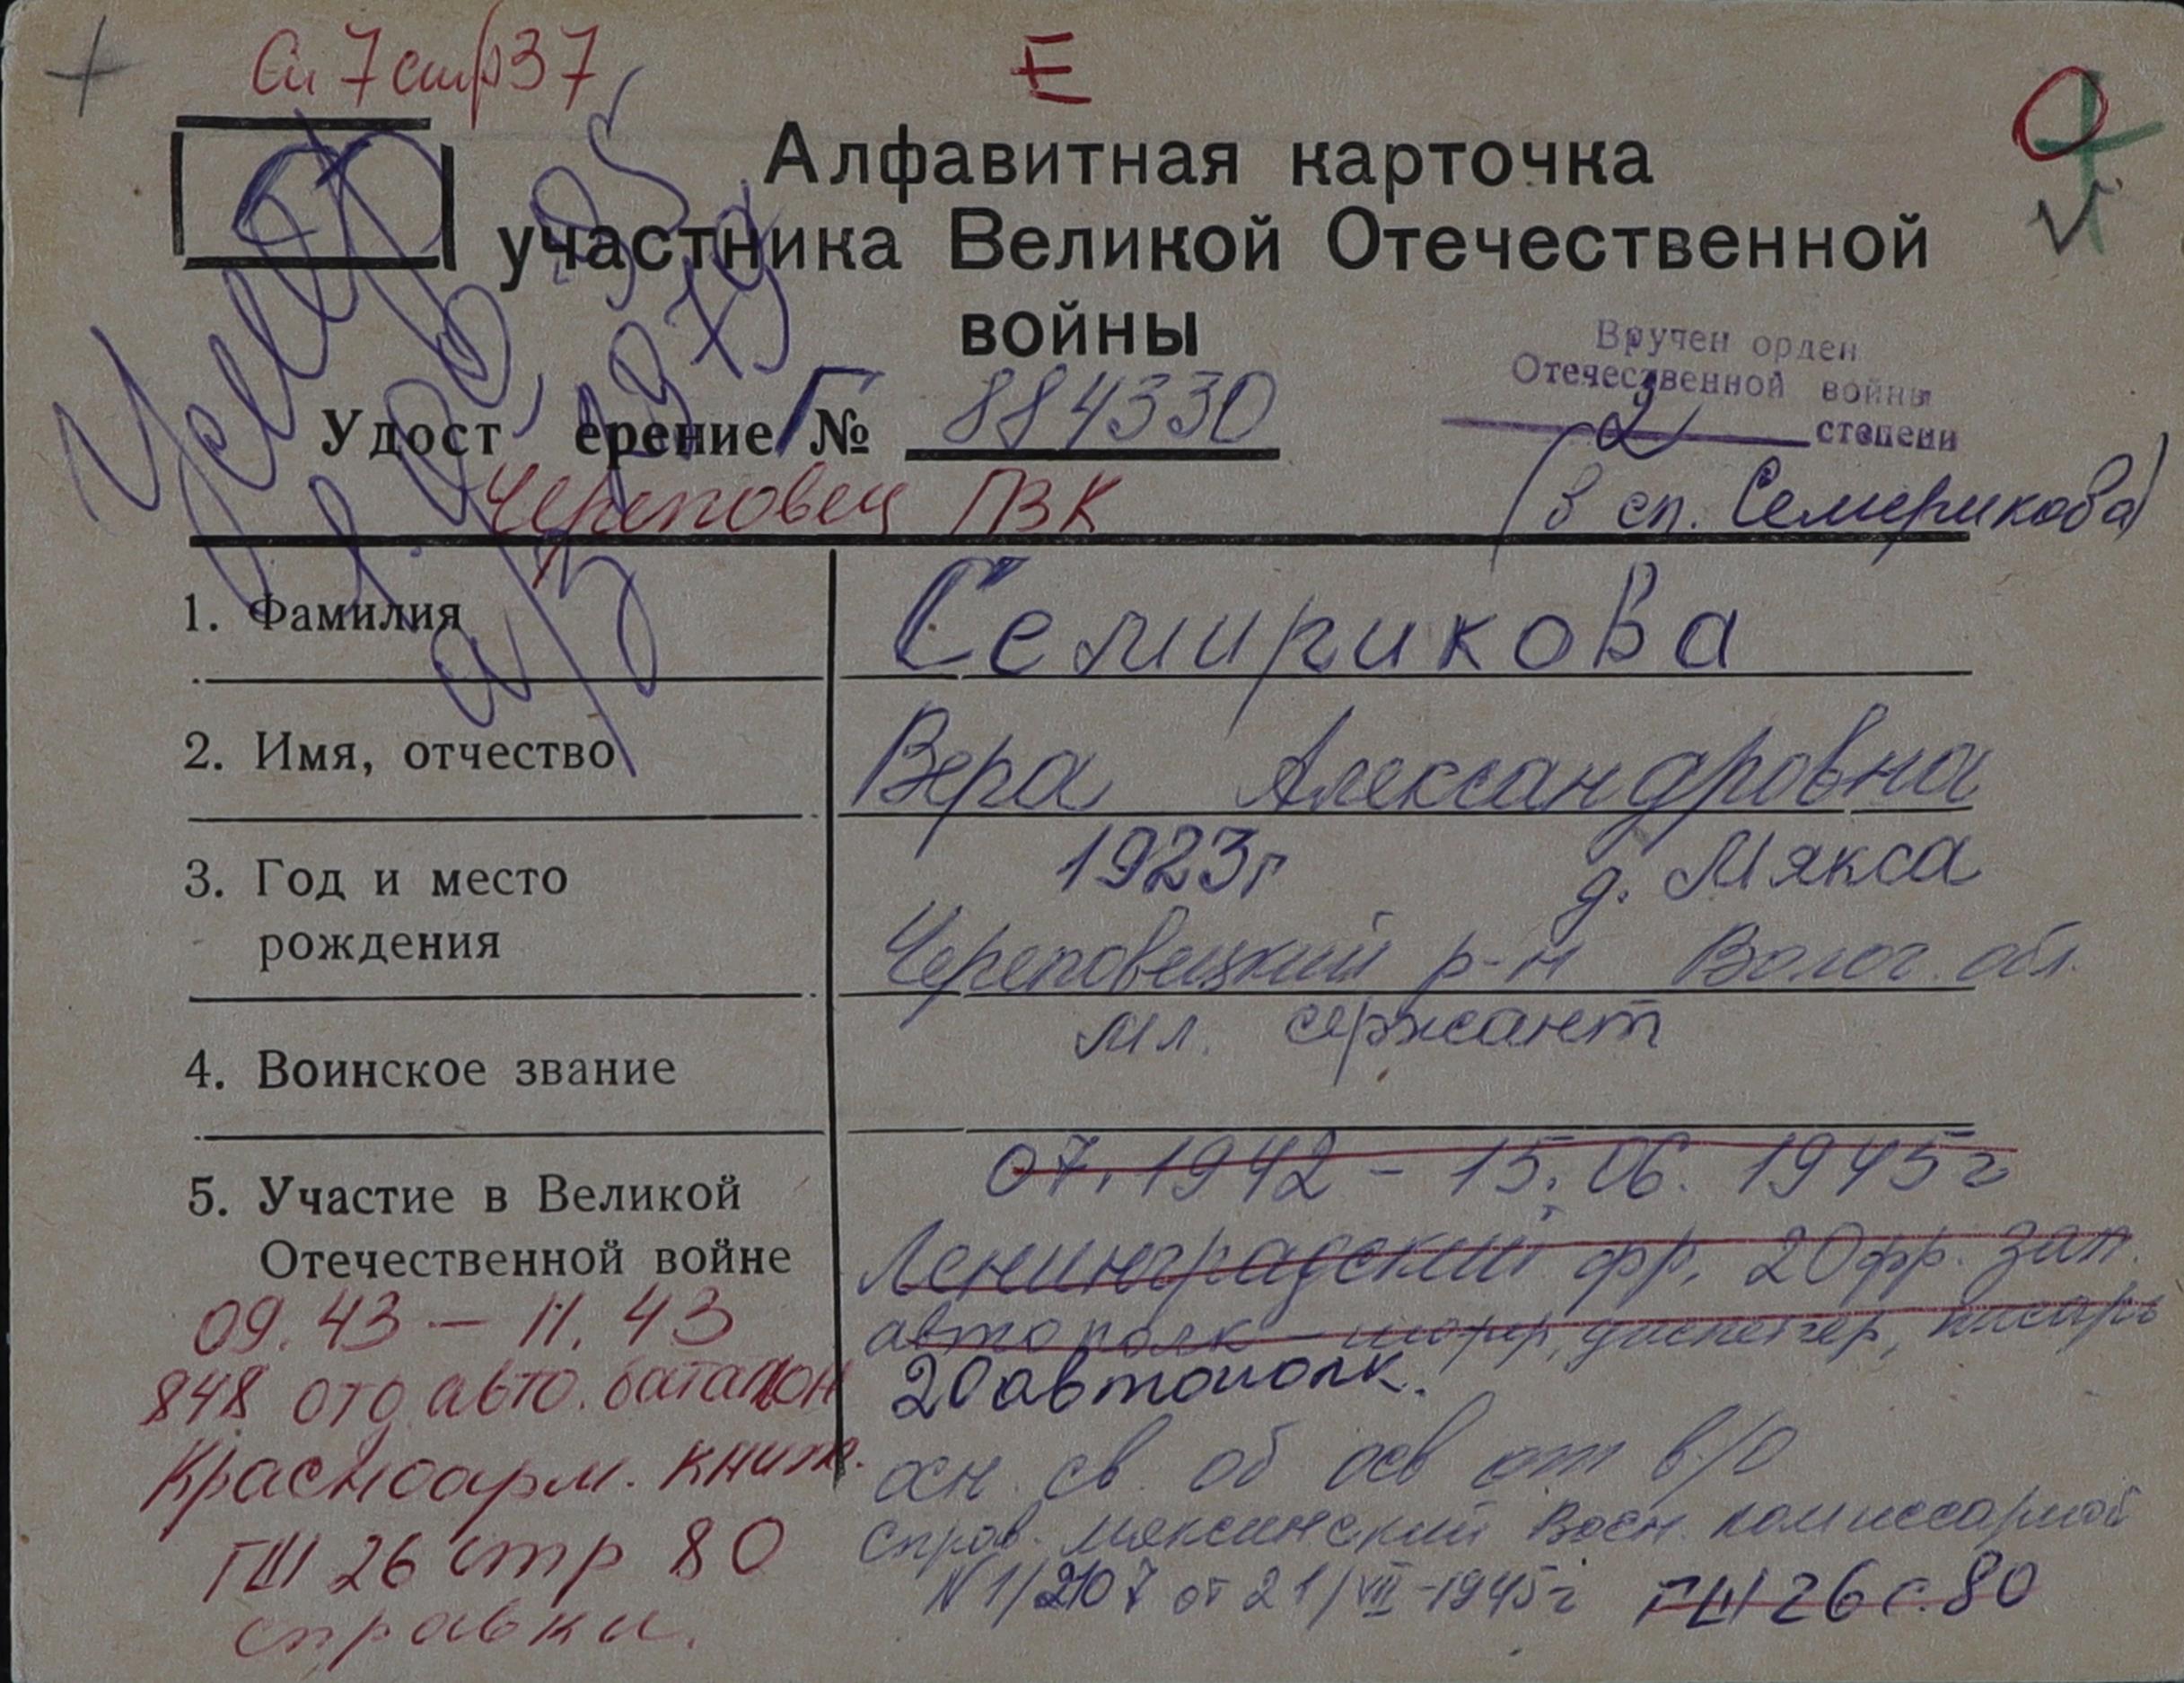 Сп 7 стр 37
Е
Алфавитная карточка
участника Великой Отечественной
войны
Вручен орден
Отечественной войны
2 степени
Удост ерение Г № 884330
Череповец ПВК
(в сп. Семерикова)
1. Фамилия
Семирикова
2. Имя, отчество
Вера Александровна
3. Год и место
рождения
1923г д. Мякса
Череповецкий р-н Волог. обл.
4. Воинское звание
мл. сержант
5. Участие в Великой
Отечественной войне
07.1942 - 15.06.1945г
Ленинградский фр. 20 фр. зап.
автополк - шофер, диспетчер, писарь
20 автополк.
осн. св. об осв от в/о
справ. Мяксинский Воен. комиссариат
N 1/2107 от 21/VII-1945г ГШ 26 с. 80
09.43 — 11.43
848 отд авто. батальон
Красноарм. книж.
ГШ 26 стр 80
справки.